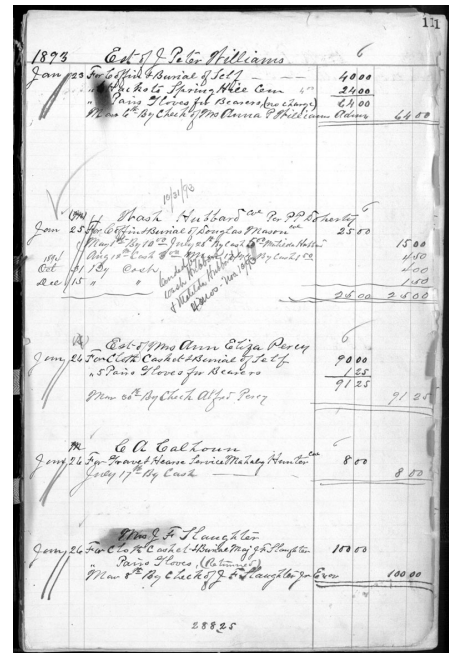 111
1893 Est of J Peter Williams 6
Jan 23 For Coffin & Burial of Self 40 00
" Hacks to Spring Hill Cem 4 00 24 00
" Pairs Gloves for Bearers (no charge) 64 00
Mar By Check of Mrs Anna P Williams Admx 64 00
10/31/93
Wash Hubbard Col Per P P Doherty 6
Jan 25 For Coffin & Burial of Douglas Mason Col 25 00
May By 10 00 July By Cash 15 00
Aug Cash By Cash 4 50
1894
Oct 31 By Cash 4 00
Dec 15 " " 1 50
Wash Hubbard
& Matilda Hubbard
25 00 25 00
Est of Mrs Ann Eliza Percy 6
Jany 26 For Cloth Casket & Burial of Self 90 00
" 5 Pairs Gloves for Bearers 1 25
91 25
Mar 30th By Check Alfred Percy 91 25
C A Calhoun 6
Jany 26 For Grave & Hearse Service Mahaley Hunter Col 8 00
July 17th By Cash 8 00
Mrs J F Slaughter
Jany 26 For Cloth Casket & Burial Maj J F Slaughter 100 00
" Pairs Gloves, (Returned)
Mar 8th By Check of J F Slaughter Jr Exor 100 00
288 25